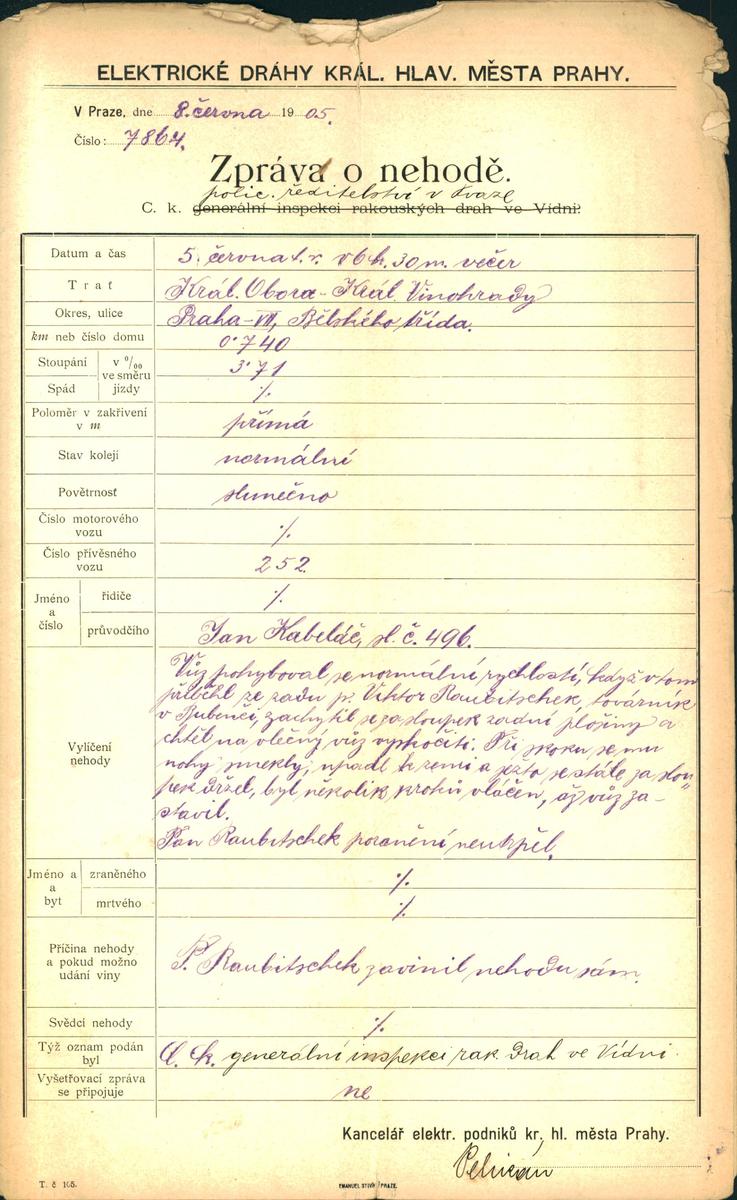 ELEKTRICKÉ DRÁHY KRÁL. HLAV. MĚSTA PRAHY.
V Praze, dne 8. června 1905.
Číslo: 7864.
Zpráva o nehodě.
polic. ředitelství v Praze
C. k. generální inspekci rakouských drah ve Vídni.
Datum a čas 5. června t. r. v 6 h. 30 m. večer
Trať Král. Obora - Král. Vinohrady
Okres, ulice Praha-VII, Bělského třída.
km neb číslo domu 0·740
Stoupání v ‰ ve směru jízdy 3·71
Spád ·/.
Poloměr v zakřivení v m přímá
Stav kolejí normální
Povětrnosť slunečno
Číslo motorového vozu ·/.
Číslo přívěsného vozu 252
Jméno a číslo řidiče ·/.
průvodčího Jan Kabeláč, sl. č. 496.
Vylíčení nehody
Vůz pohyboval se normální rychlostí, když v tom
přiběhl ze zadu p. Viktor Raubitschek, továrník
v Bubenči, zachytil se za sloupek zadní plošiny a
chtěl na vlečný vůz vyskočiti. Při skoku se mu
nohy smekly, upadl k zemi a ježto se stále za slou„
pek držel, byl několik kroků vláčen, až vůz za-
stavil.
Pan Raubitschek poranění neutrpěl.
Jméno a a byt zraněného ·/.
mrtvého ·/.
Příčina nehody a pokud možno udání viny P. Raubitschek zavinil nehodu sám.
Svědci nehody ·/.
Týž oznam podán byl C. k. generální inspekci rak. drah ve Vídni.
Vyšetřovací zpráva se připojuje ne
Kancelář elektr. podniků kr. hl. města Prahy.
Pelikán
T. č 165.
EMANUEL STIVÍN PRAZE.